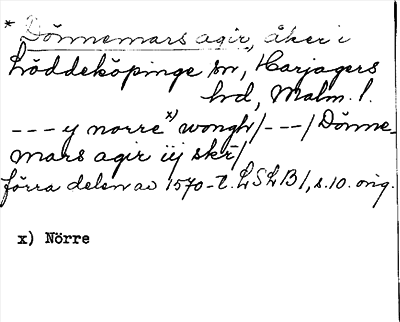 * Dönnemars agir, åker i
Löddeköpinge sn, Harjagers
hd, Malm. l.
--- y norre x) wongh/---/Dönne-
mars agir iij skr/
förra delen av 1570-t. LSLB1, s.10. orig.
x) Nörre